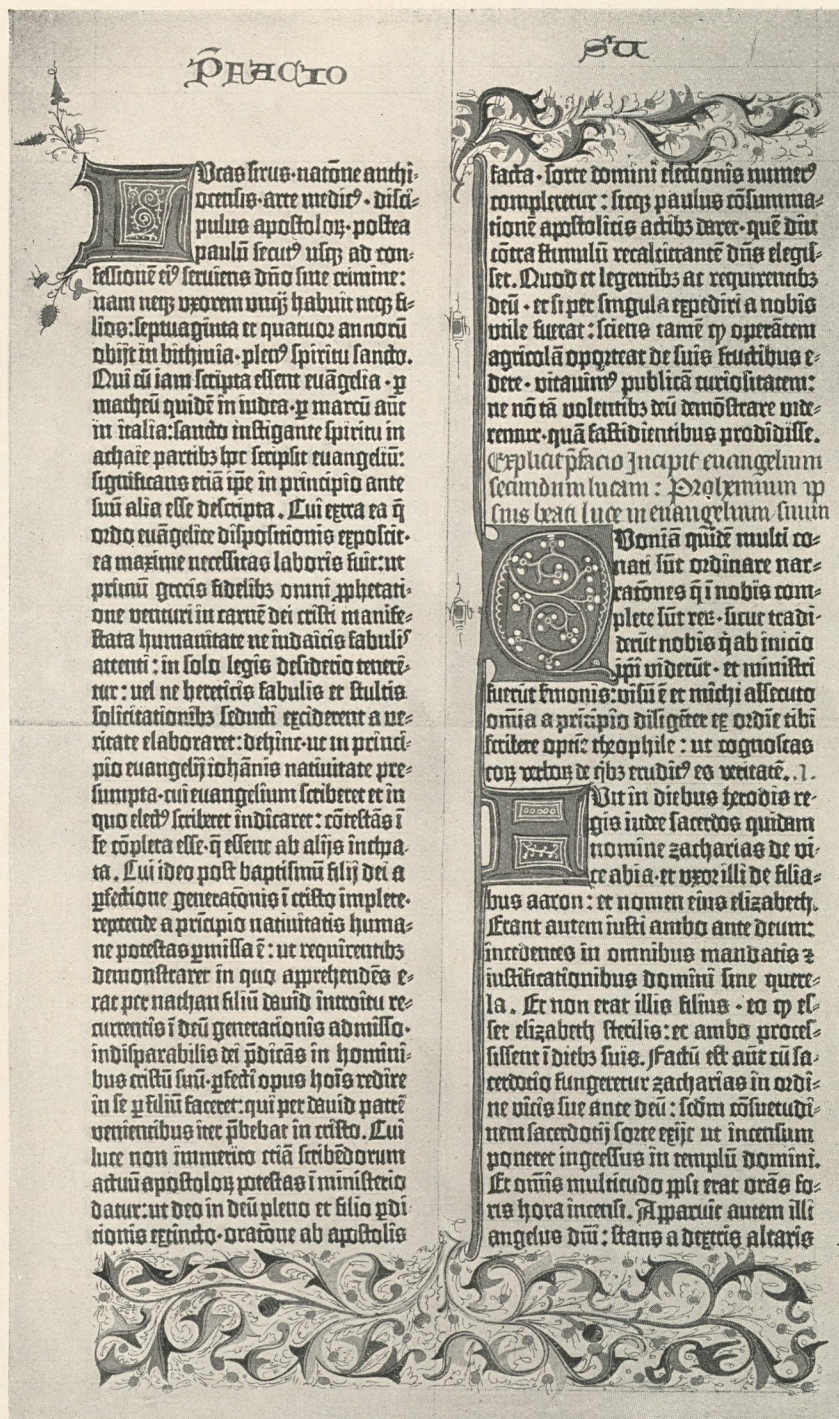 P̄FACIO
SCU
LUcas sirus·natōne anthi⸗
ocensis·arte medicꝰ·disci⸗
pulus apostoloꝝ·postea
paulū secutꝰ usqꝫ ad con⸗
fessionē eiꝰ serviens dn̄o sine crimine:
nam neqꝫ vxorem unqꝫ habuit neqꝫ fi⸗
lios:septuaginta et quatuor annorū
obijt in bithinia·plenꝰ spiritu sancto.
Qui cū iam scripta essent euāgelia·ꝑ
matheū quidē in iudea·ꝑ marcū aūt
in italia:sancto instigante spiritu in
achaie partibꝫ hoc scripsit euangeliū:
significans etiā ip̄e in principio ante
suū alia esse descripta. Cui extra ea q̄
ordo euāgelice dispositionis exposcit·
ea maxime necessitas laboris fuit:ut
primū grecis fidelibꝫ omni ꝓphetati⸗
one venturi in carnē dei cristi manife⸗
stata humanitate ne iudaicis fabulis
attenti: in solo legis desiderio tenerē⸗
tur: vel ne hereticis fabulis et stultis
solicitationibꝫ seducti exciderent a ve⸗
ritate elaboraret:dehinc·ut in princi⸗
pio euangelij iohānis nativitate pre⸗
sumpta·cui euangelium scriberet et in
quo electꝰ scriberet indicaret: cōtestās ī
se cōpleta esse·q̄ essent ab alijs incħpa⸗
ta. Cui ideo post baptismū filij dei a
ꝑfectione generatōnis ī cristo implete·
repetende a principio nativitatis huma⸗
ne potestas ꝑmissa ē: ut requirentibꝫ
demonstraret in quo apprehendēs e⸗
rat per nathan filiū david introitu re⸗
currentis ī deū generationis admisso·
indisparabilis dei p̄dicās in homini⸗
bus cristū suū·ꝑfecti opus hoīs redire
in se ꝑ filiū faceret:qui per david patrē
venientibus iter p̄bebat in cristo. Cui
luce non immerito etiā scribēdorum
actuū apostoloꝝ potestas ī ministerio
datur:ut deo in deū pleno et filio ꝑdi⸗
tionis extincto·oratōne ab apostolis
facta·sorte domini electionis numerꝰ
completetur: sicqꝫ paulus cōsumma⸗
tionē apostolicis actibꝫ daret·quē diu
cōtra stimulū recalcitrantē dn̄s elegis⸗
set. Quod et legentibꝫ ac requirentibꝫ
deū·et si per singula expediri a nobis
utile fuerat: sciens tamē ꝙ operātem
agricolā oporteat de suis fructibus e⸗
dere·vitavimꝰ publicā curiositatem:
ne nō tā volentibꝫ deū demōstrare vide⸗
remur·quā fastidientibus prodidisse.
Explicit p̄facio Incipit euangelium
secundum lucam: Prohemium ip
sius beati luce in euangelium suum
QUoniā quidē multi co⸗
nati sūt ordinare nar⸗
ratōnes q̄ ī nobis com⸗
plete sūt reꝝ·sicut tradi⸗
derūt nobis q̄ ab inicio
ip̄i viderūt·et ministri
fuerūt s̄monis:visū ē et michi assecuto
om̄ia a pricipio diligēter ex ordīe tibi
scribere optīe theophile: ut cognoscas
eoꝝ verboꝝ de q̄bꝫ eruditꝰ es veritatē..I.
FUit in diebus herodis re⸗
gis iudee sacerdos quidam
nomine zacharias de vi⸗
ce abia·et vxor illi de filia⸗
bus aaron: et nomen eius elizabeth.
Erant autem iusti ambo ante deum:
incedentes in omnibus mandatis ⁊
iustificationibus domini sine quere⸗
la. Et non erat illis filius·eo ꝙ es⸗
set elizabeth sterilis:et ambo proces⸗
sissent ī diebꝫ suis. Factū est aūt cū sa⸗
cerdotio fungeretur zacharias in ordi⸗
ne vicis sue ante deū: scdm̄ cōsuetudi⸗
nem sacerdotij sorte exijt ut incensum
poneret ingressus in templū domini.
Et om̄is multitudo ppl̄i erat orās fo⸗
ris hora incensi. Apparuit autem illi
angelus dn̄i: stans a dextris altaris